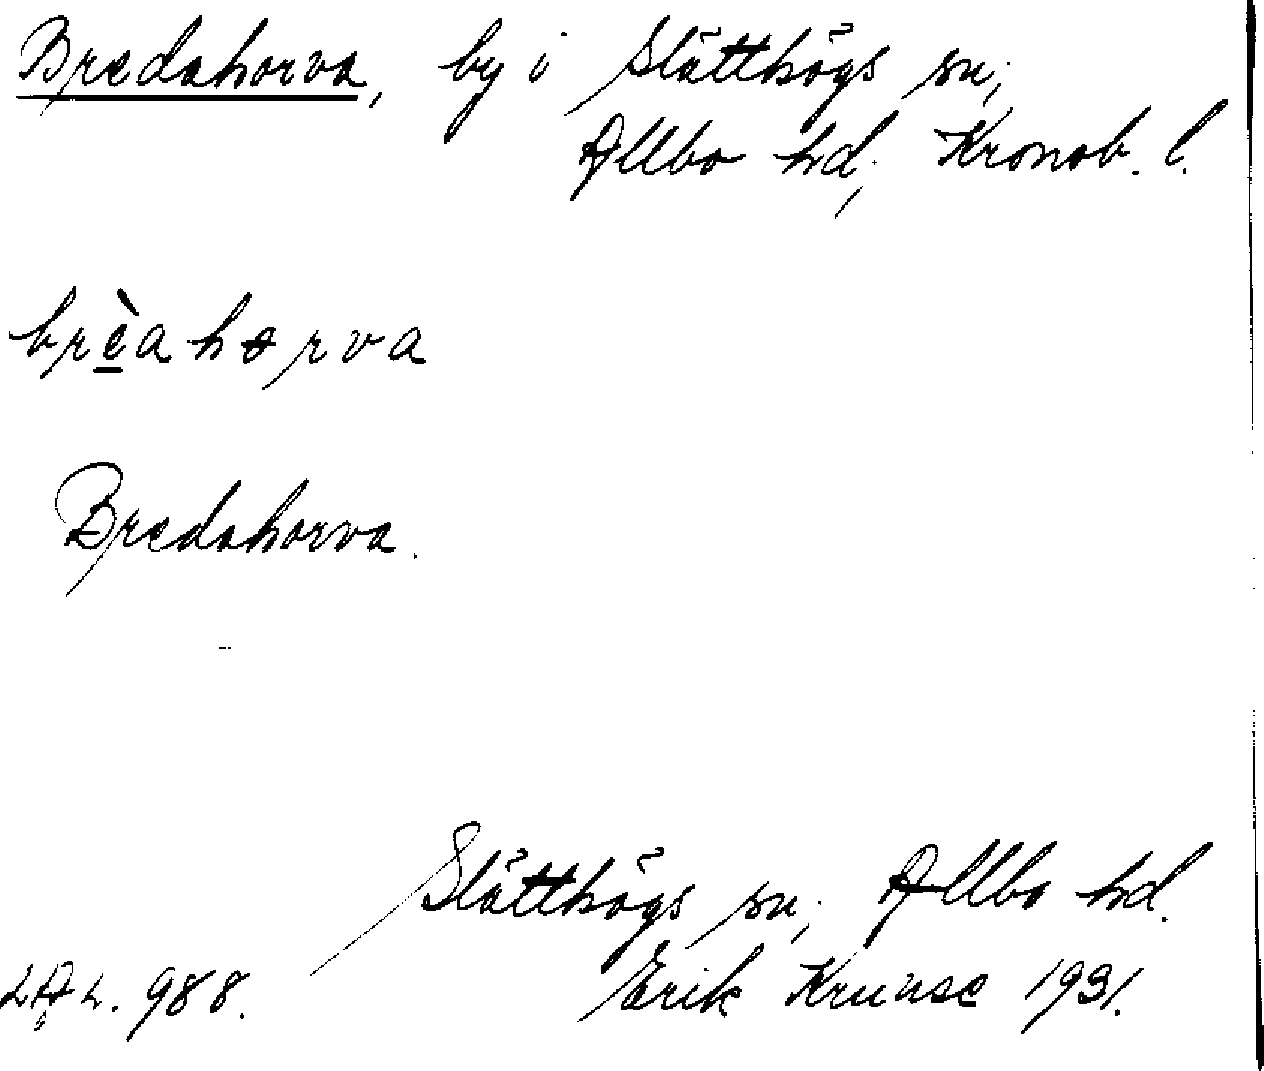 Bredahorva, by i Slätthögs sn;
Allbo hd; Kronob. l.
brèahɵrva
Bredahorva.
Slätthögs sn; Allbo hd.
LAL. 988. Erik Kruuse 1931.